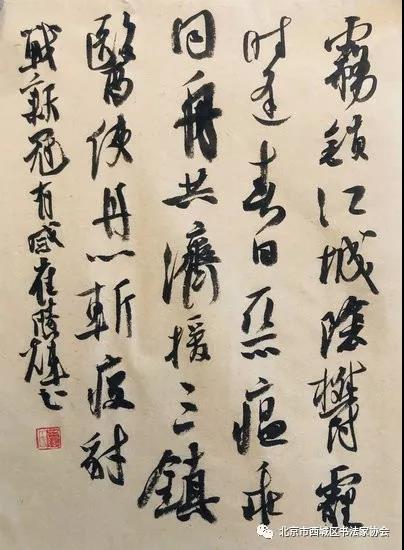 霧鎖江城陰鬱霾
時逢春日惡瘟乖
同舟共濟援三鎮
醫俠丹心斬疫豺
戰新冠有感崔陵輝书
北京市西城区书法家协会